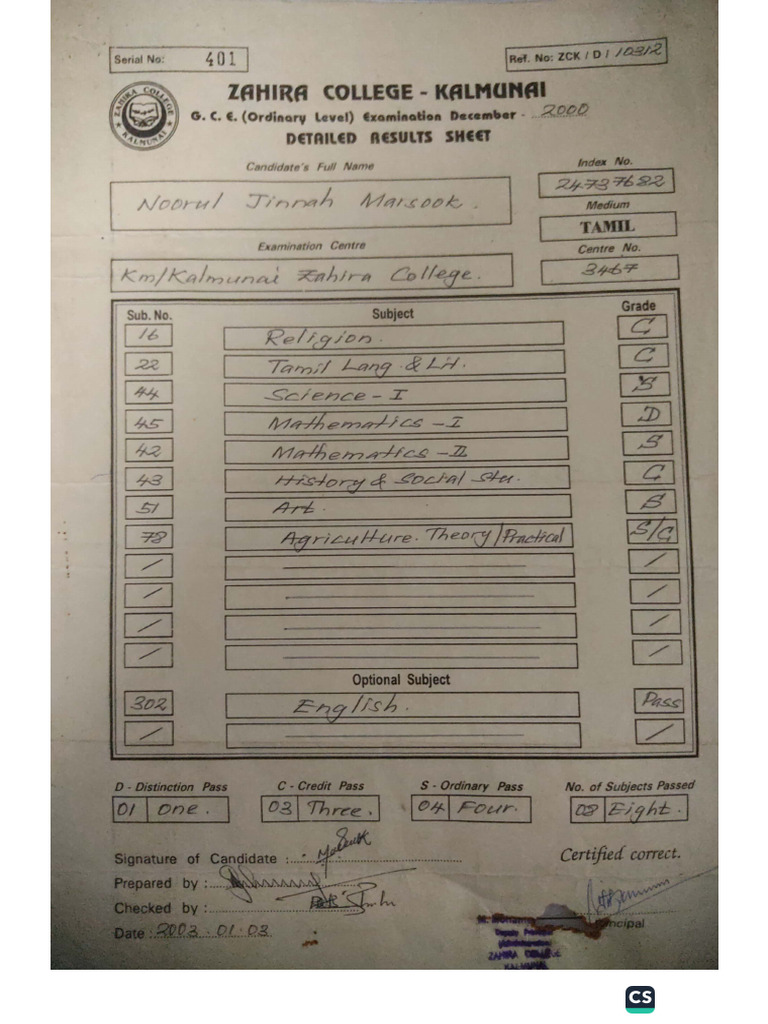 Serial No: 401
Ref. No: ZCK / D / 10312
ZAHIRA COLLEGE - KALMUNAI
G. C. E. (Ordinary Level) Examination December - 2000
DETAILED RESULTS SHEET
ZAHIRA COLLEGE
KALMUNAI
Candidate's Full Name
Index No.
Noorul Jinnah Marsook.
24737682
Medium
TAMIL
Examination Centre
Centre No.
Km/Kalmunai Zahira College.
3467
Sub. No. Subject Grade
16 Religion. C
22 Tamil Lang. & Lit. C
44 Science - I S
45 Mathematics - I D
42 Mathematics - II S
43 History & Social Stu. C
51 Art. S
78 Agriculture. Theory/Practical S/C
Optional Subject
302 English. Pass
D - Distinction Pass C - Credit Pass S - Ordinary Pass No. of Subjects Passed
01 One. 03 Three. 04 Four. 08 Eight.
Signature of Candidate :
Certified correct.
Prepared by :
Checked by :
Principal
Date : 2003.01.03
Deputy Principal
ZAHIRA COLLEGE
KALMUNAI
CS